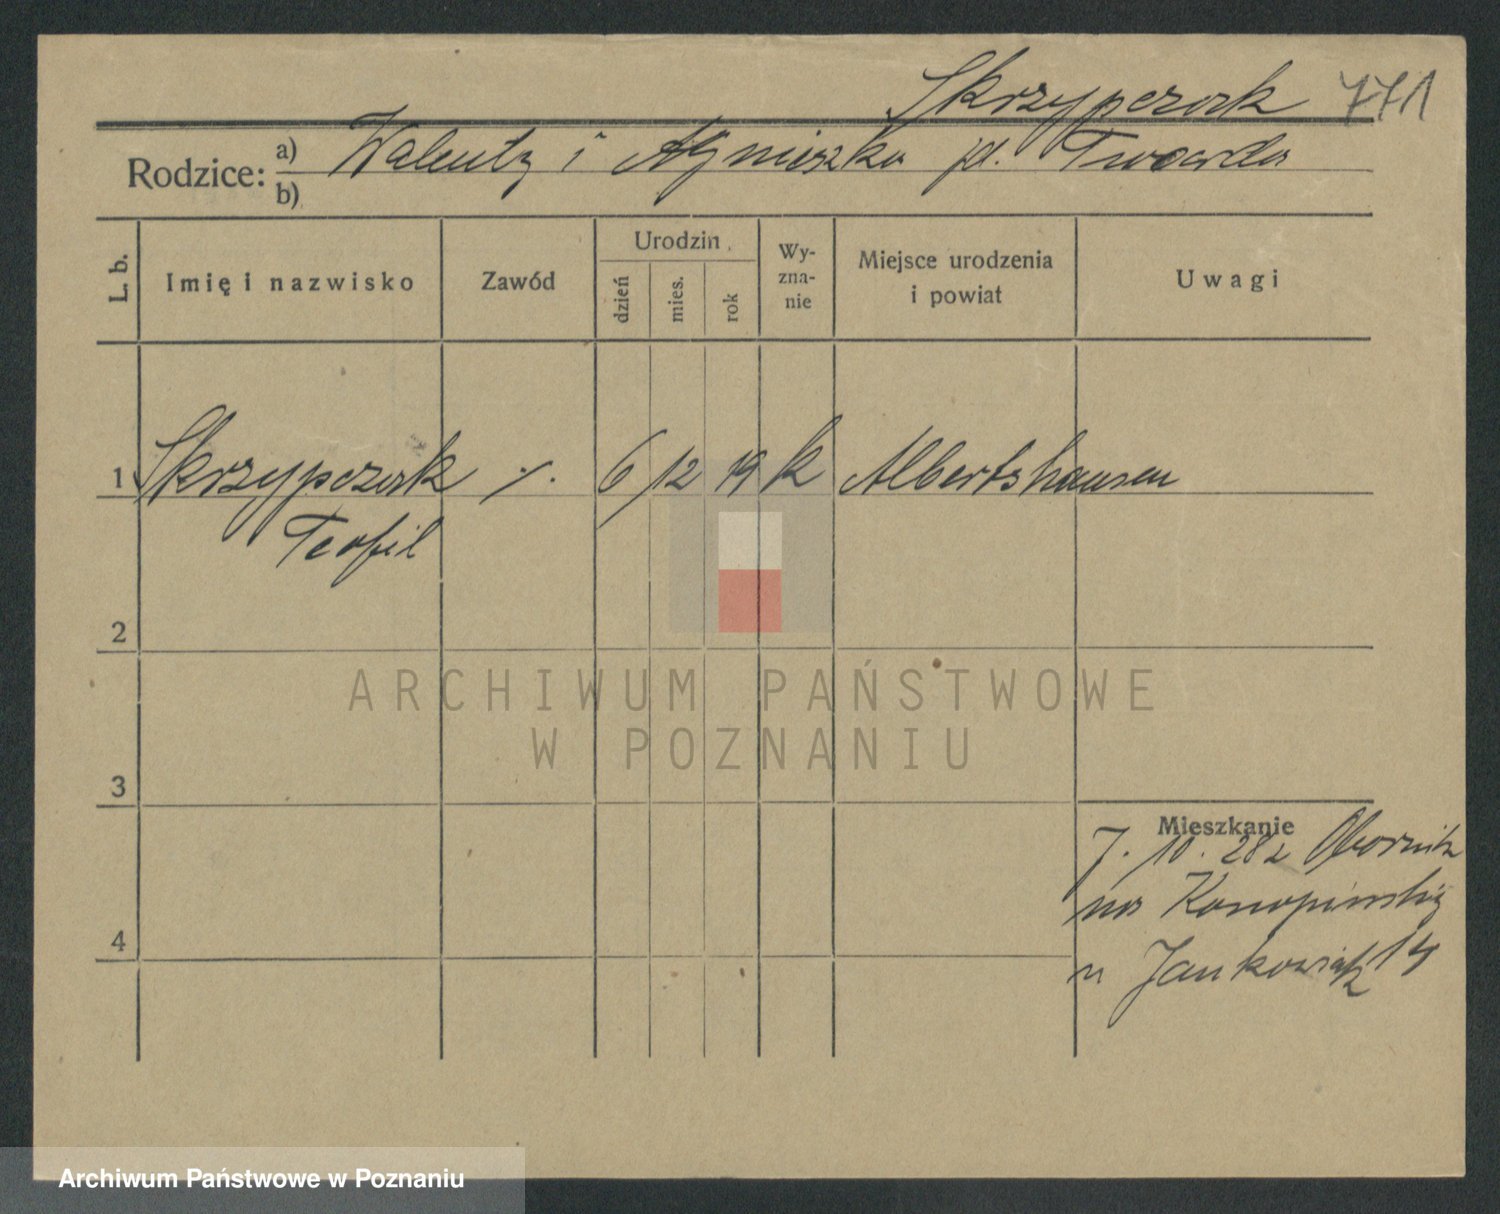 Skrzypczak 771
Rodzice: a) Walenty i Agnieszka zd. Twarda
b)
L. b.
Imię i nazwisko
Zawód
Urodzin
dzień
mies.
rok
Wy-
zna-
nie
Miejsce urodzenia
i powiat
Uwagi
1 Skrzypczak ./. 6/12 19 k Albertshausen
Teofil
2
3
4
Mieszkanie
7. 10. 28 z Obornik
na
u Jankowiak 14
ARCHIWUM PAŃSTWOWE
W POZNANIU
Archiwum Państwowe w Poznaniu